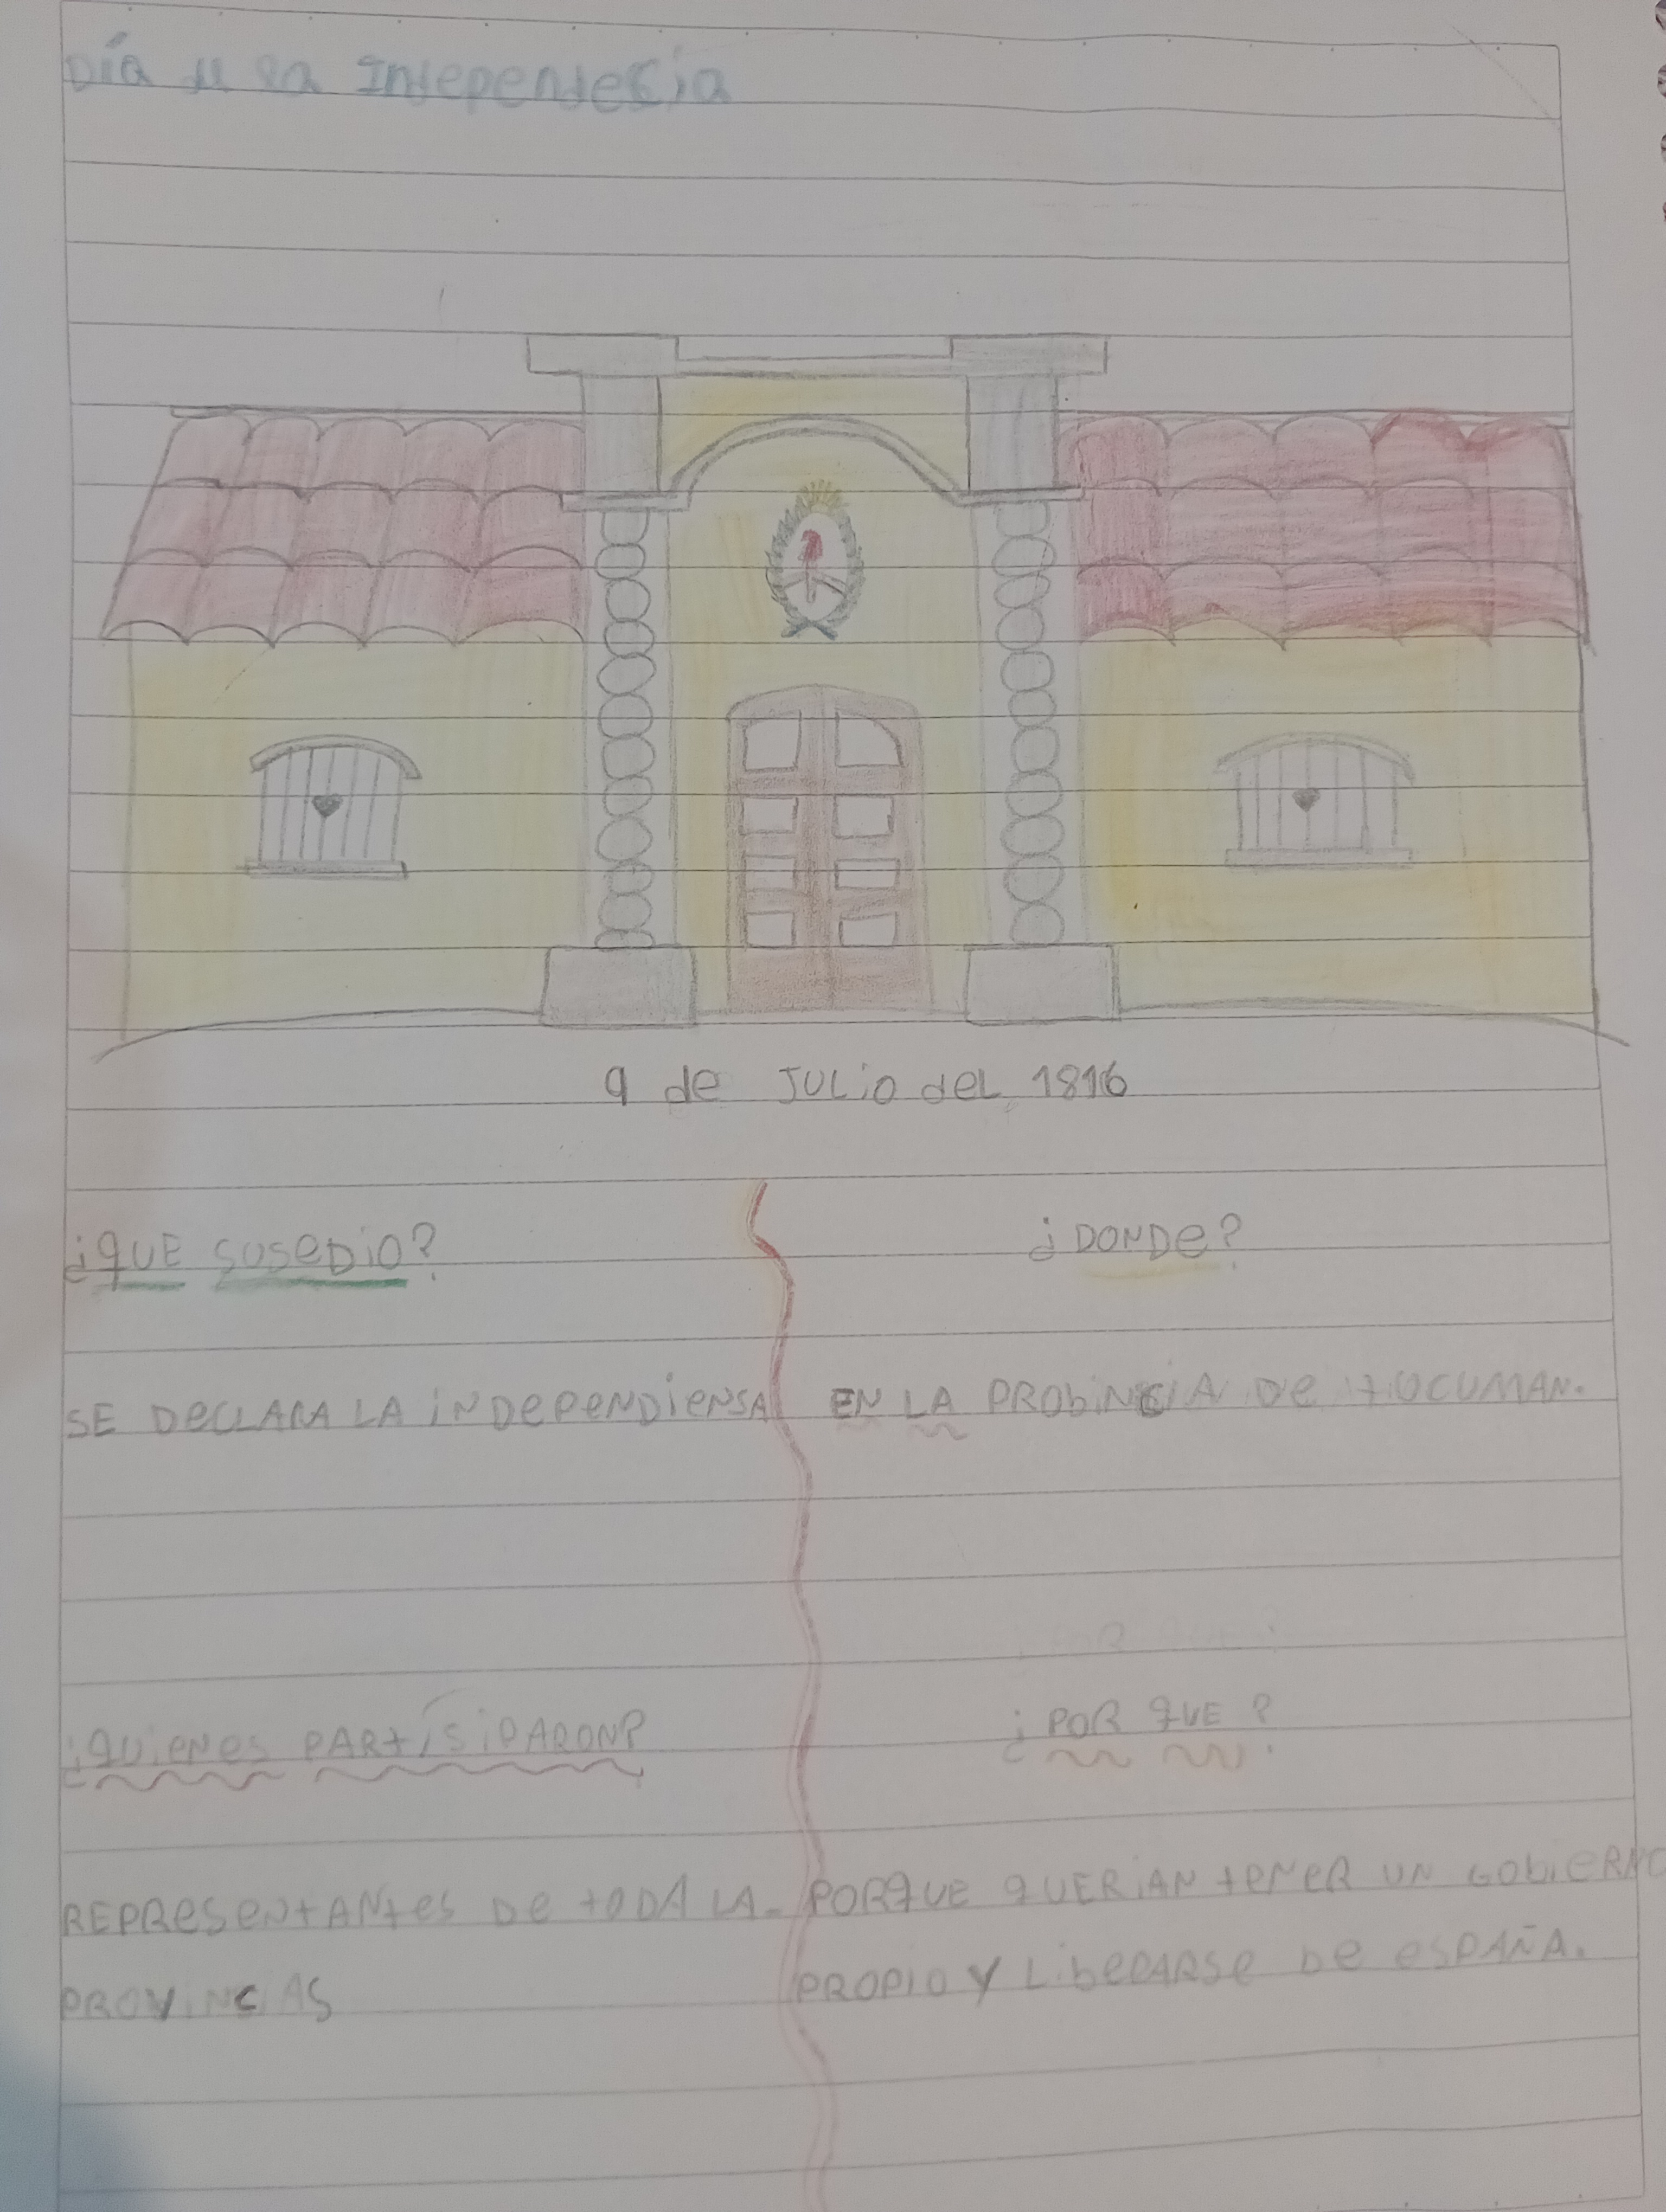 Día de la Intepentecia
9 de JULio deL 1816
¿QUE SUSEDIO?
SE DECLARA LA iNDEPENDIENSA
¿DONDE?
EN LA PROBINCIA DE TUCUMAN.
¿QUIENES PARTISIPARON?
REPRESENTANTES DE TODA LA.
PROVINCIAS
¿POR QUE?
PORQUE QUERIAN TENER UN GOBIERNO
PROPIO Y LIBERARSE DE ESPAÑA.